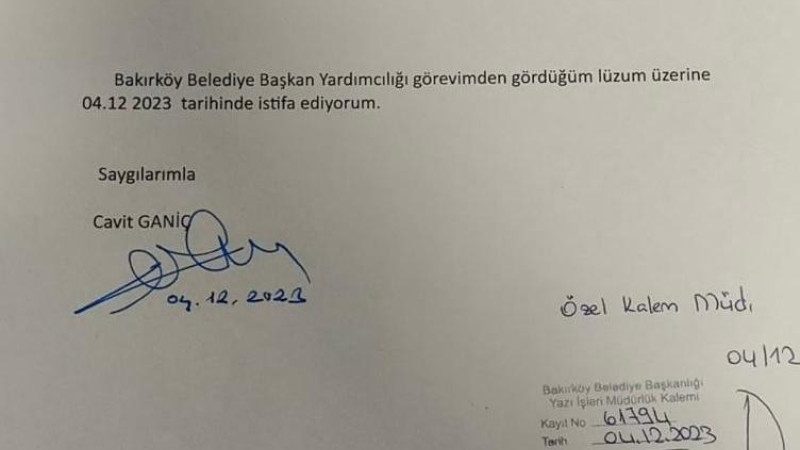 Bakırköy Belediye Başkan Yardımcılığı görevimden gördüğüm lüzum üzerine
04.12 2023 tarihinde istifa ediyorum.
Saygılarımla
Cavit GANİÇ
04.12.2023
Özel Kalem Müd.
04/12
Bakırköy Belediye Başkanlığı
Yazı İşleri Müdürlük Kalemi
Kayıt No 61794
Tarih 04.12.2023